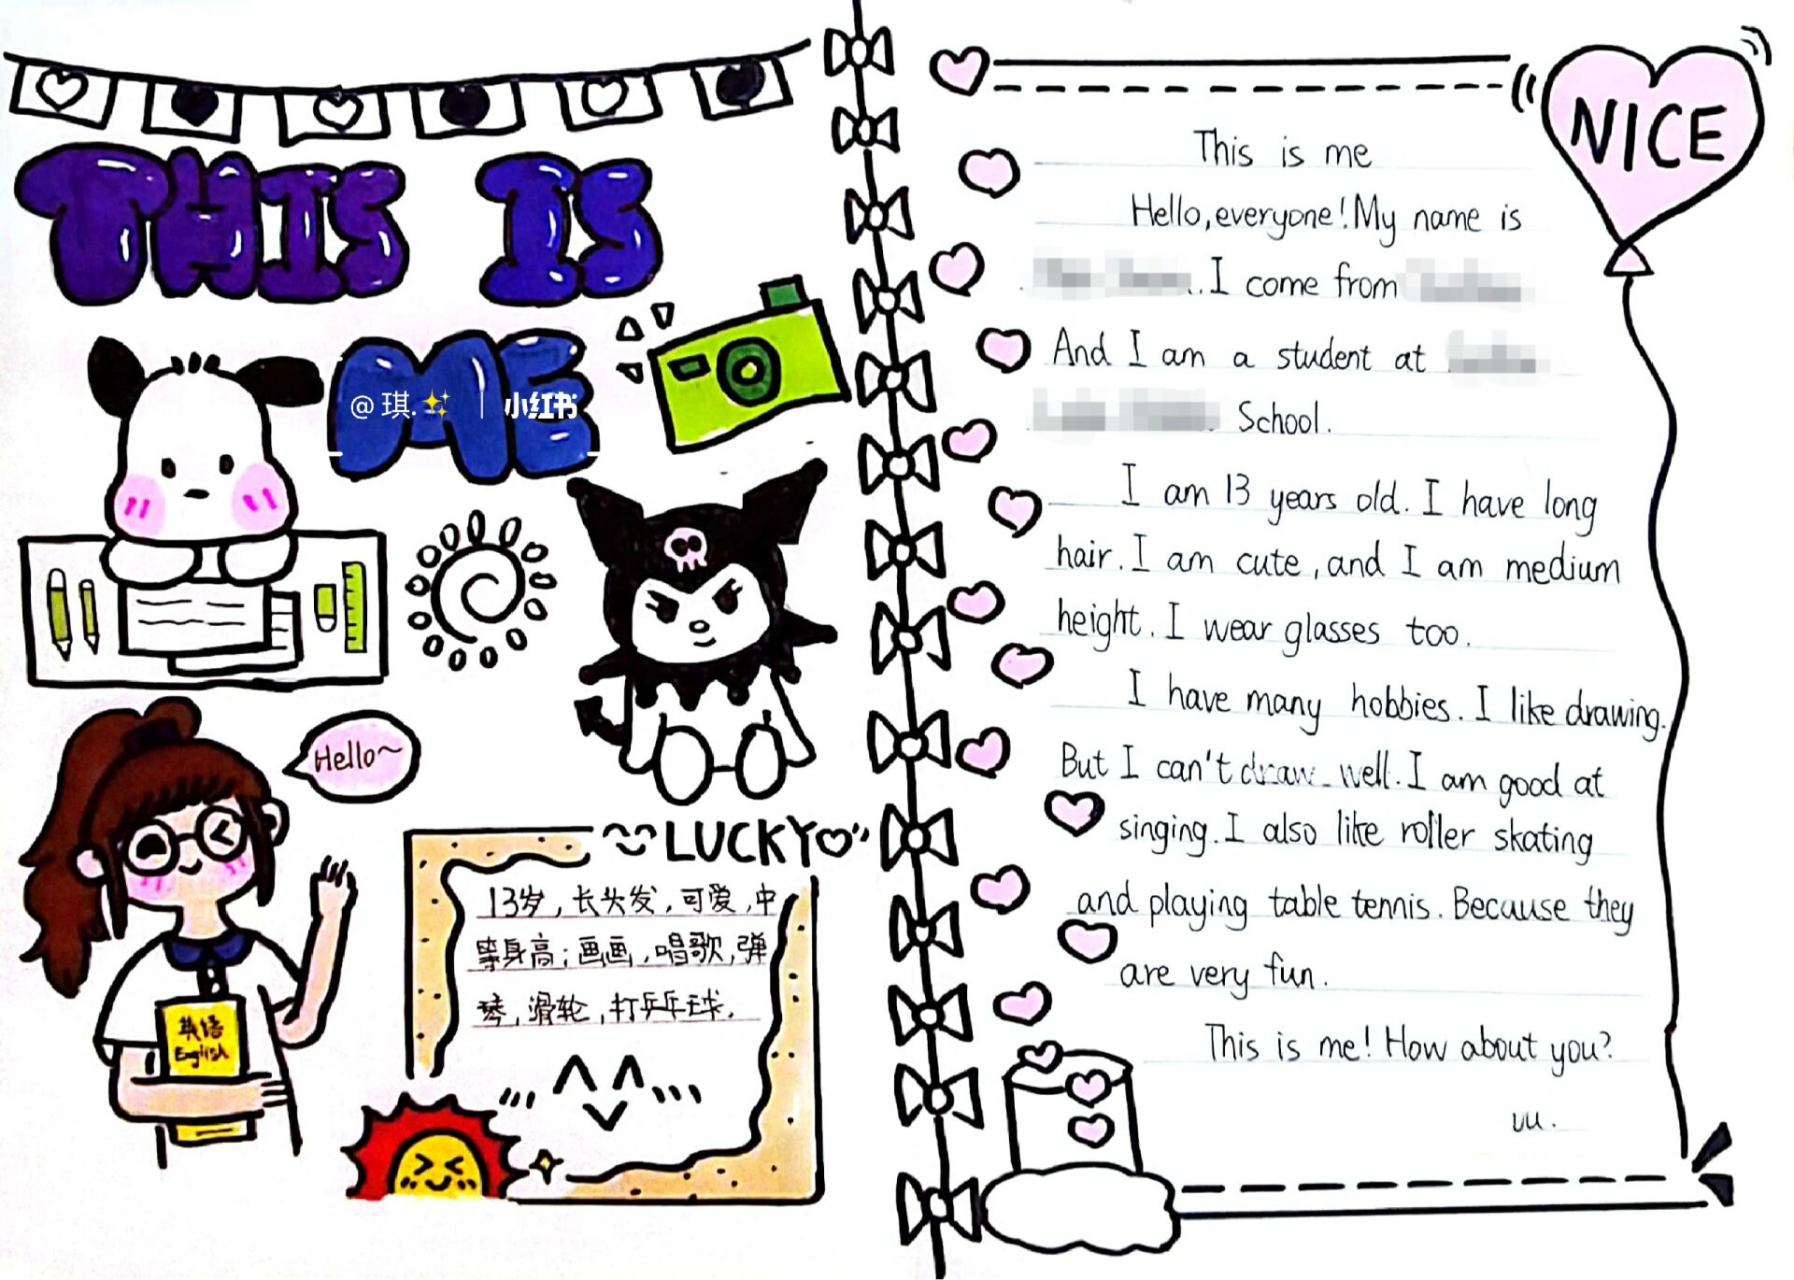 THIS IS
ME
@琪.✨ | 小红书
Hello~
英语
English
LUCKY
13岁,长头发,可爱,中
等身高;画画,唱歌,弹
琴,滑轮,打乒乓球.
NICE
This is me
Hello,everyone!My name is
.I come from
And I am a student at
School.
I am 13 years old. I have long
hair. I am cute, and I am medium
height. I wear glasses too.
I have many hobbies. I like drawing.
But I can't draw well. I am good at
singing. I also like roller skating
and playing table tennis. Because they
are very fun.
This is me! How about you?